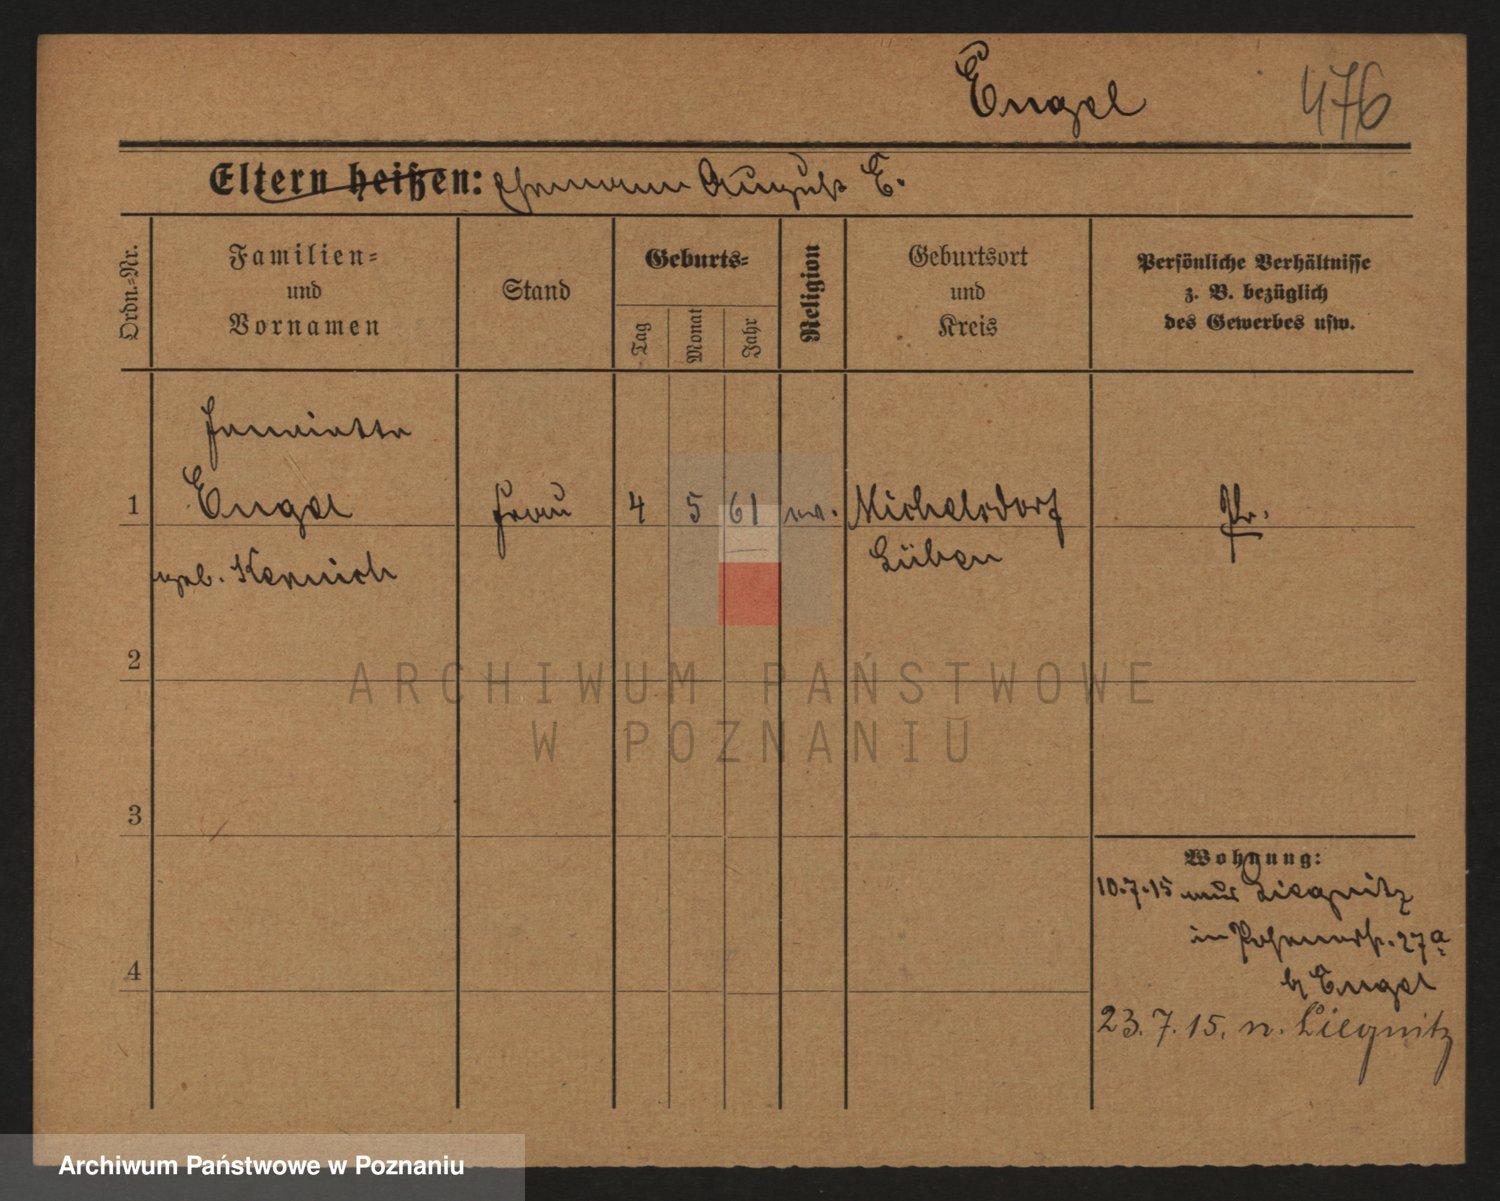 Engel 476
Eltern heißen: Ehemann August E.
Ordn.-Nr.
Familien-
und
Vornamen
Stand
Geburts-
Tag
Monat
Jahr
Religion
Geburtsort
und
Kreis
Persönliche Verhältnisse
z. B. bezüglich
des Gewerbes usw.
Henriette
1 Engel Frau 4 5 61 ev. Michelsdorf Pr.
geb. Kernich Lüben
2
ARCHIWUM PAŃSTWOWE
W POZNANIU
3
Wohnung:
10.7.15 aus Liegnitz
in 27a
4
b/ Engel
23.7.15. n. Liegnitz
Archiwum Państwowe w Poznaniu